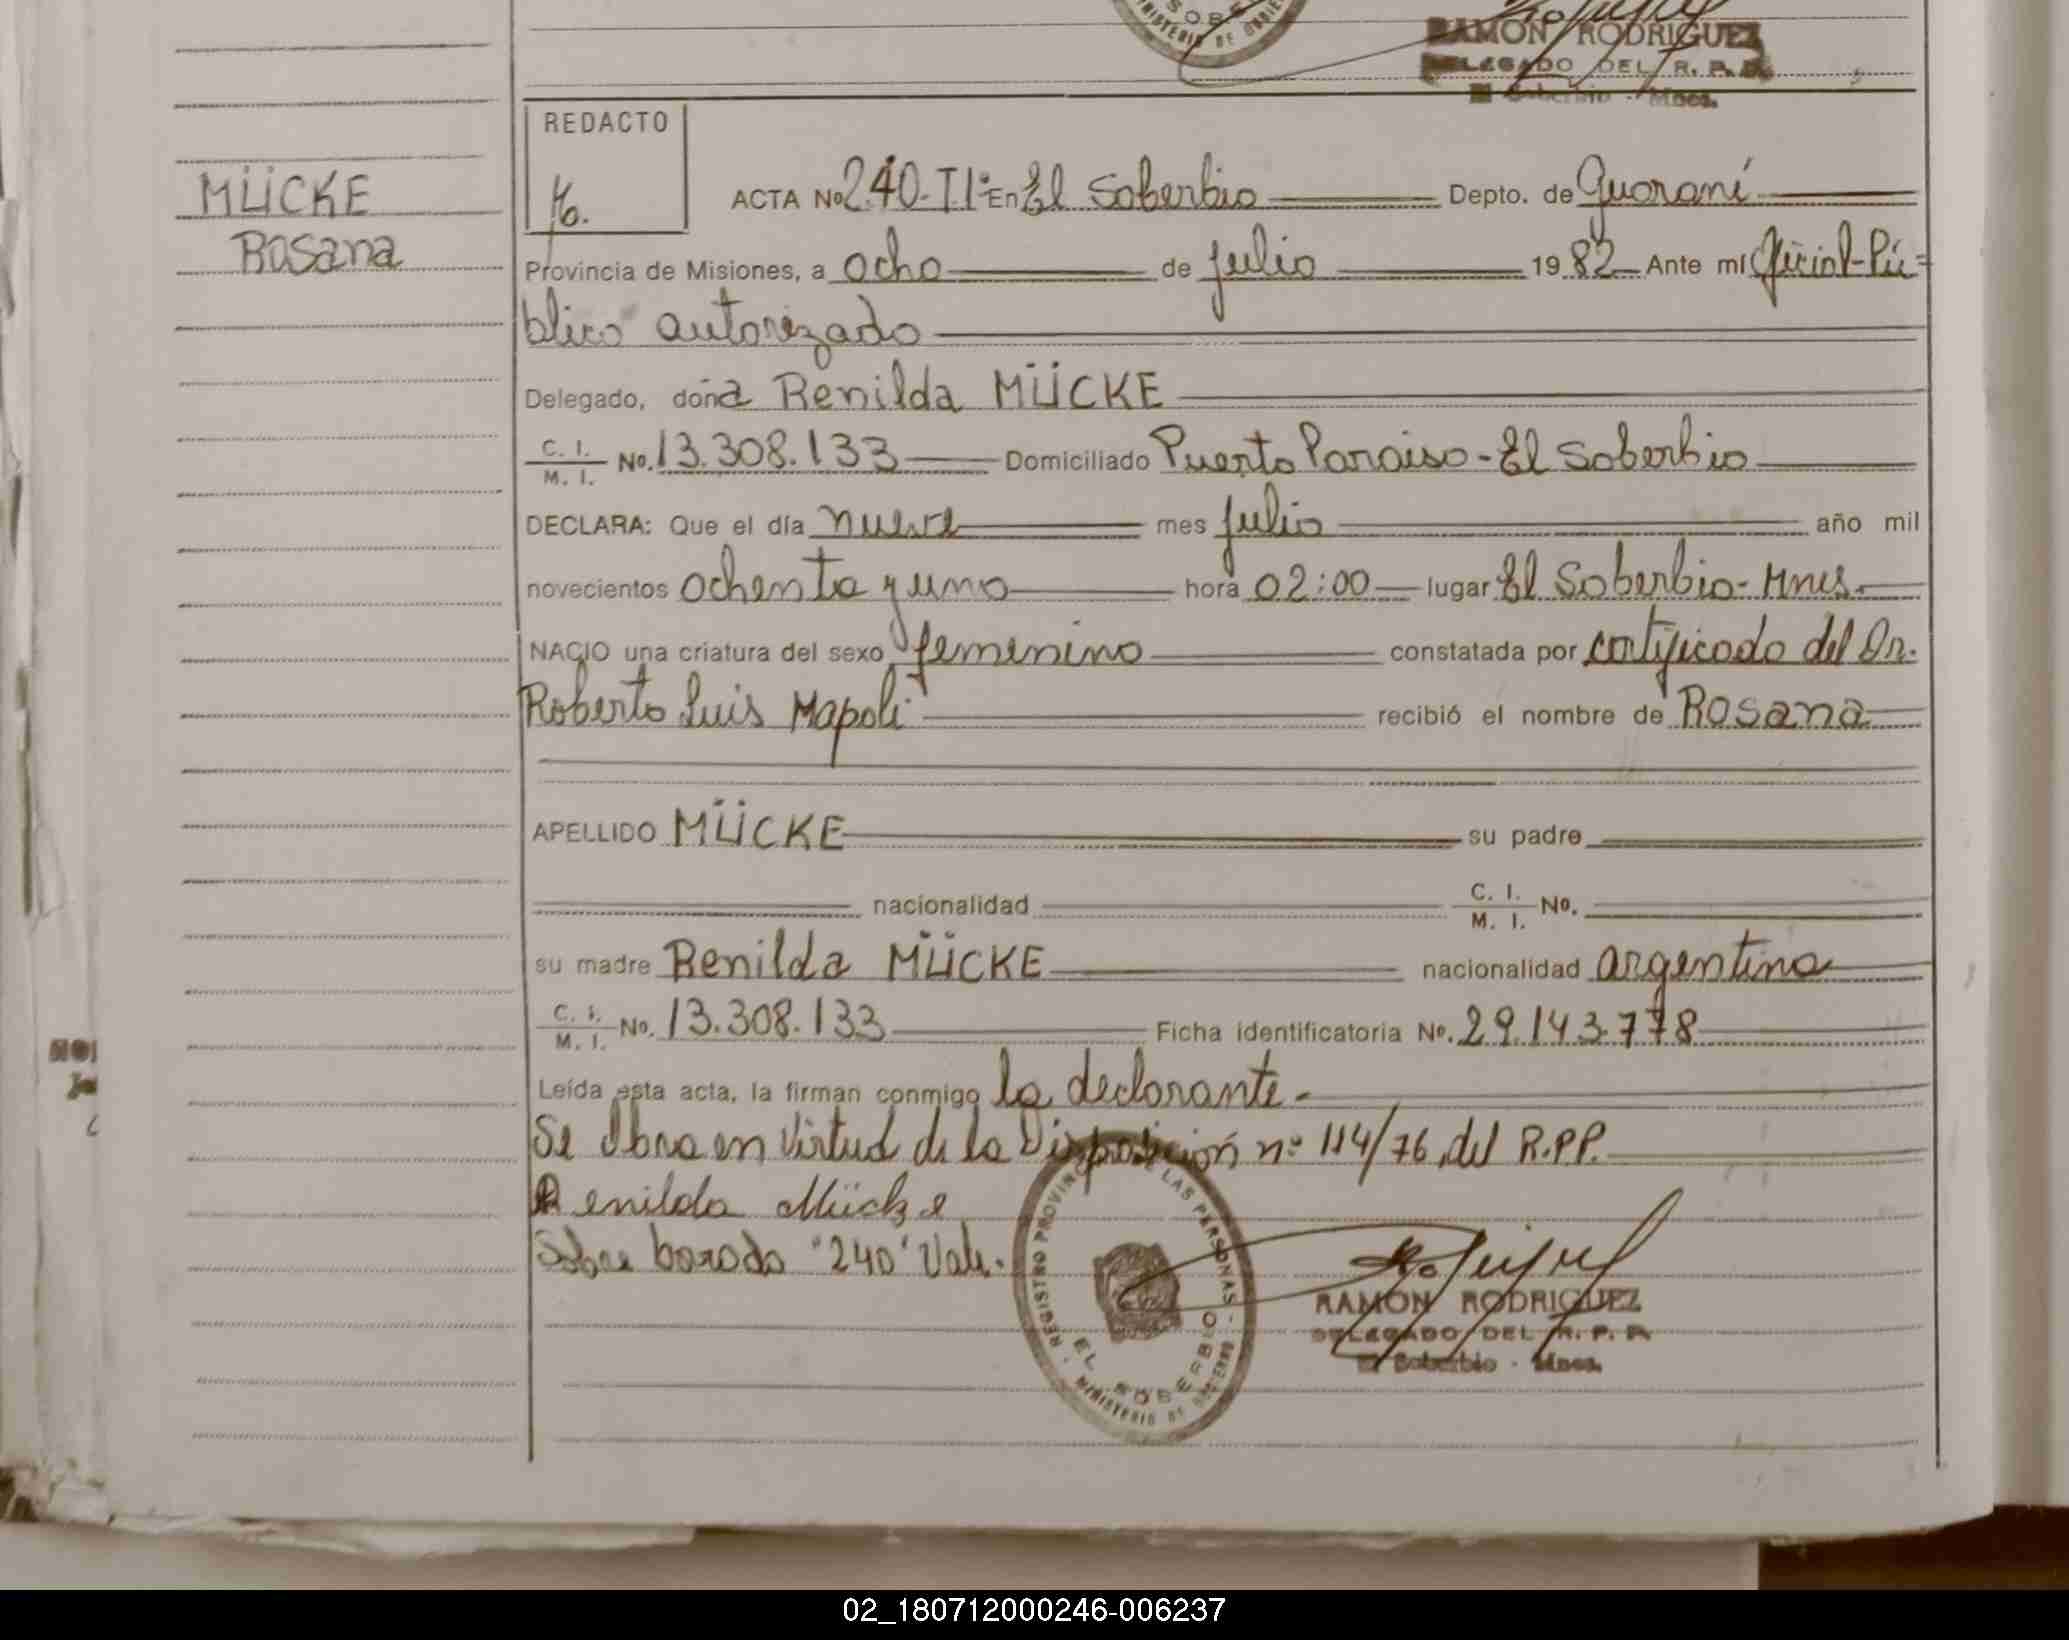 SOBE
MINISTERIO DE GOBIE
RAMON RODRIGUEZ
DELEGADO DEL R. P. P.
El Soberbio - Mnes.
MÜCKE
Rosana
REDACTO
ACTA No 240-T1º En El Soberbio Depto. de Guaraní
Provincia de Misiones, a ocho de julio 1982 Ante mí Oficial-Pú-
blico autorizado
Delegado, doña Renilda MÜCKE
C. I. / M. I. No. 13.308.133 Domiciliado Puerto Paraiso - El Soberbio
DECLARA: Que el día nueve mes julio año mil
novecientos ochenta y uno hora 02:00 lugar El Soberbio - Mnes.
NACIO una criatura del sexo femenino constatada por certificado del Dr.
Roberto Luis Mapoli recibió el nombre de Rosana
APELLIDO MÜCKE su padre
nacionalidad C. I. / M. I. No.
su madre Renilda MÜCKE nacionalidad argentina
C. I. / M. I. No. 13.308.133 Ficha identificatoria No. 29.143.778
Leída esta acta, la firman conmigo la declarante.
Se Obra en virtud de la Disposición nº 114/76 del R.P.P.
Renilda Mücke
Sobre borrado "240" Vale.
REGISTRO PROVINC LAS PERSONAS
EL SOBERBIO
MINISTERIO DE GOBIERNO
RAMON RODRIGUEZ
DELEGADO DEL R. P. P.
El Soberbio - Mnes.
02_180712000246-006237